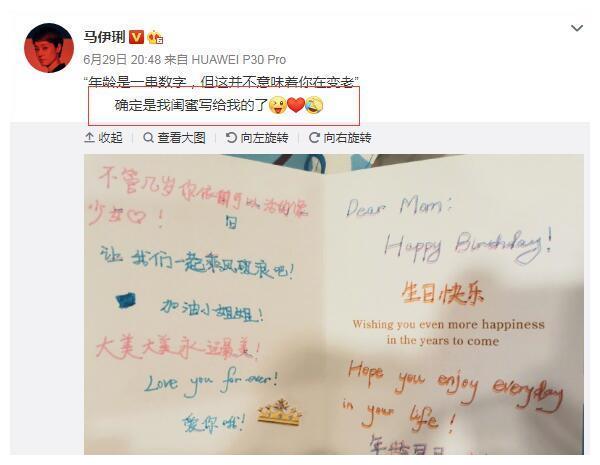 马伊琍
6月29日 20:48 来自 HUAWEI P30 Pro
“年龄是一串数字，但这并不意味着你在变老”
确定是我闺蜜写给我的了😜❤️🤣
收起 查看大图 向左旋转 向右旋转
不管几岁你依旧可以活的像
少女♡！
旧
让我们一起乘风破浪吧！
加油小姐姐！
大美大美永远最美！
Love you for ever!
爱你哦！
Dear Mom:
Happy Birthday!
生日快乐
Wishing you even more happiness
in the years to come
Hope you enjoy everyday
in your life!
年龄